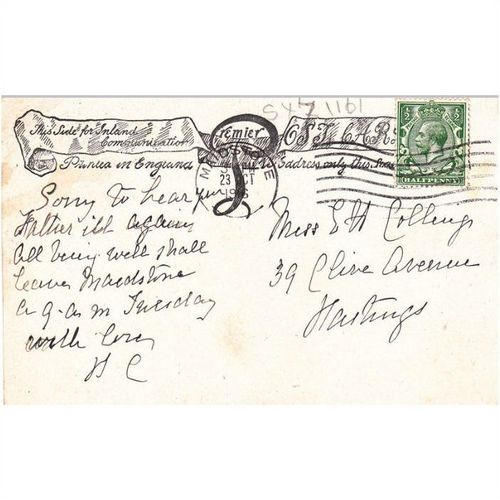 SXZ 1161
This Side for Inland
Communication
Premier
POST CARD
Printed in England
Address only this
MAIDSTONE
23 OCT
HALFPENNY
Sorry to hear your
Father ill again
All being well shall
leave Maidstone
9 a m Tuesday
with love
H C
Miss E H Collings
39 Clive Avenue
Hastings